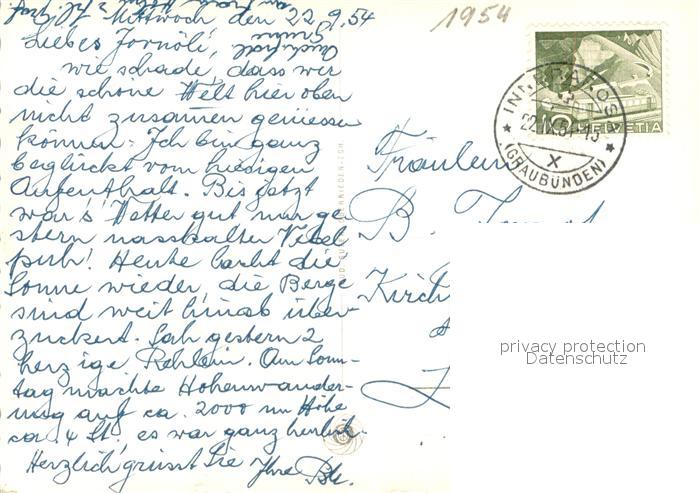 Mittwoch den 22.9.54
Liebes Jornöli,
wie schade, dass wir
die schöne Welt hier oben
nicht zusammen geniessen
können. Ich bin ganz
beglückt vom hiesigen
Aufenthalt. Bis jetzt
war's Wetter gut nur ge
stern nasskalter Nebel
puh! Heute lacht die
Sonne wieder, die Berge
sind weit hinab über-
zuckert. Sah gestern 2
herzige Rehlein. Am Sonn-
tag machte Höhenwander-
ung auf ca. 2000 m Höhe
ca. 4 St., es war ganz herrlich.
Herzlich grüsst Sie Ihre
1954
HELVETIA
22.IX.54-15
X
(GRAUBÜNDEN)
Fräulein
B.
Kirch
privacy protection
Datenschutz